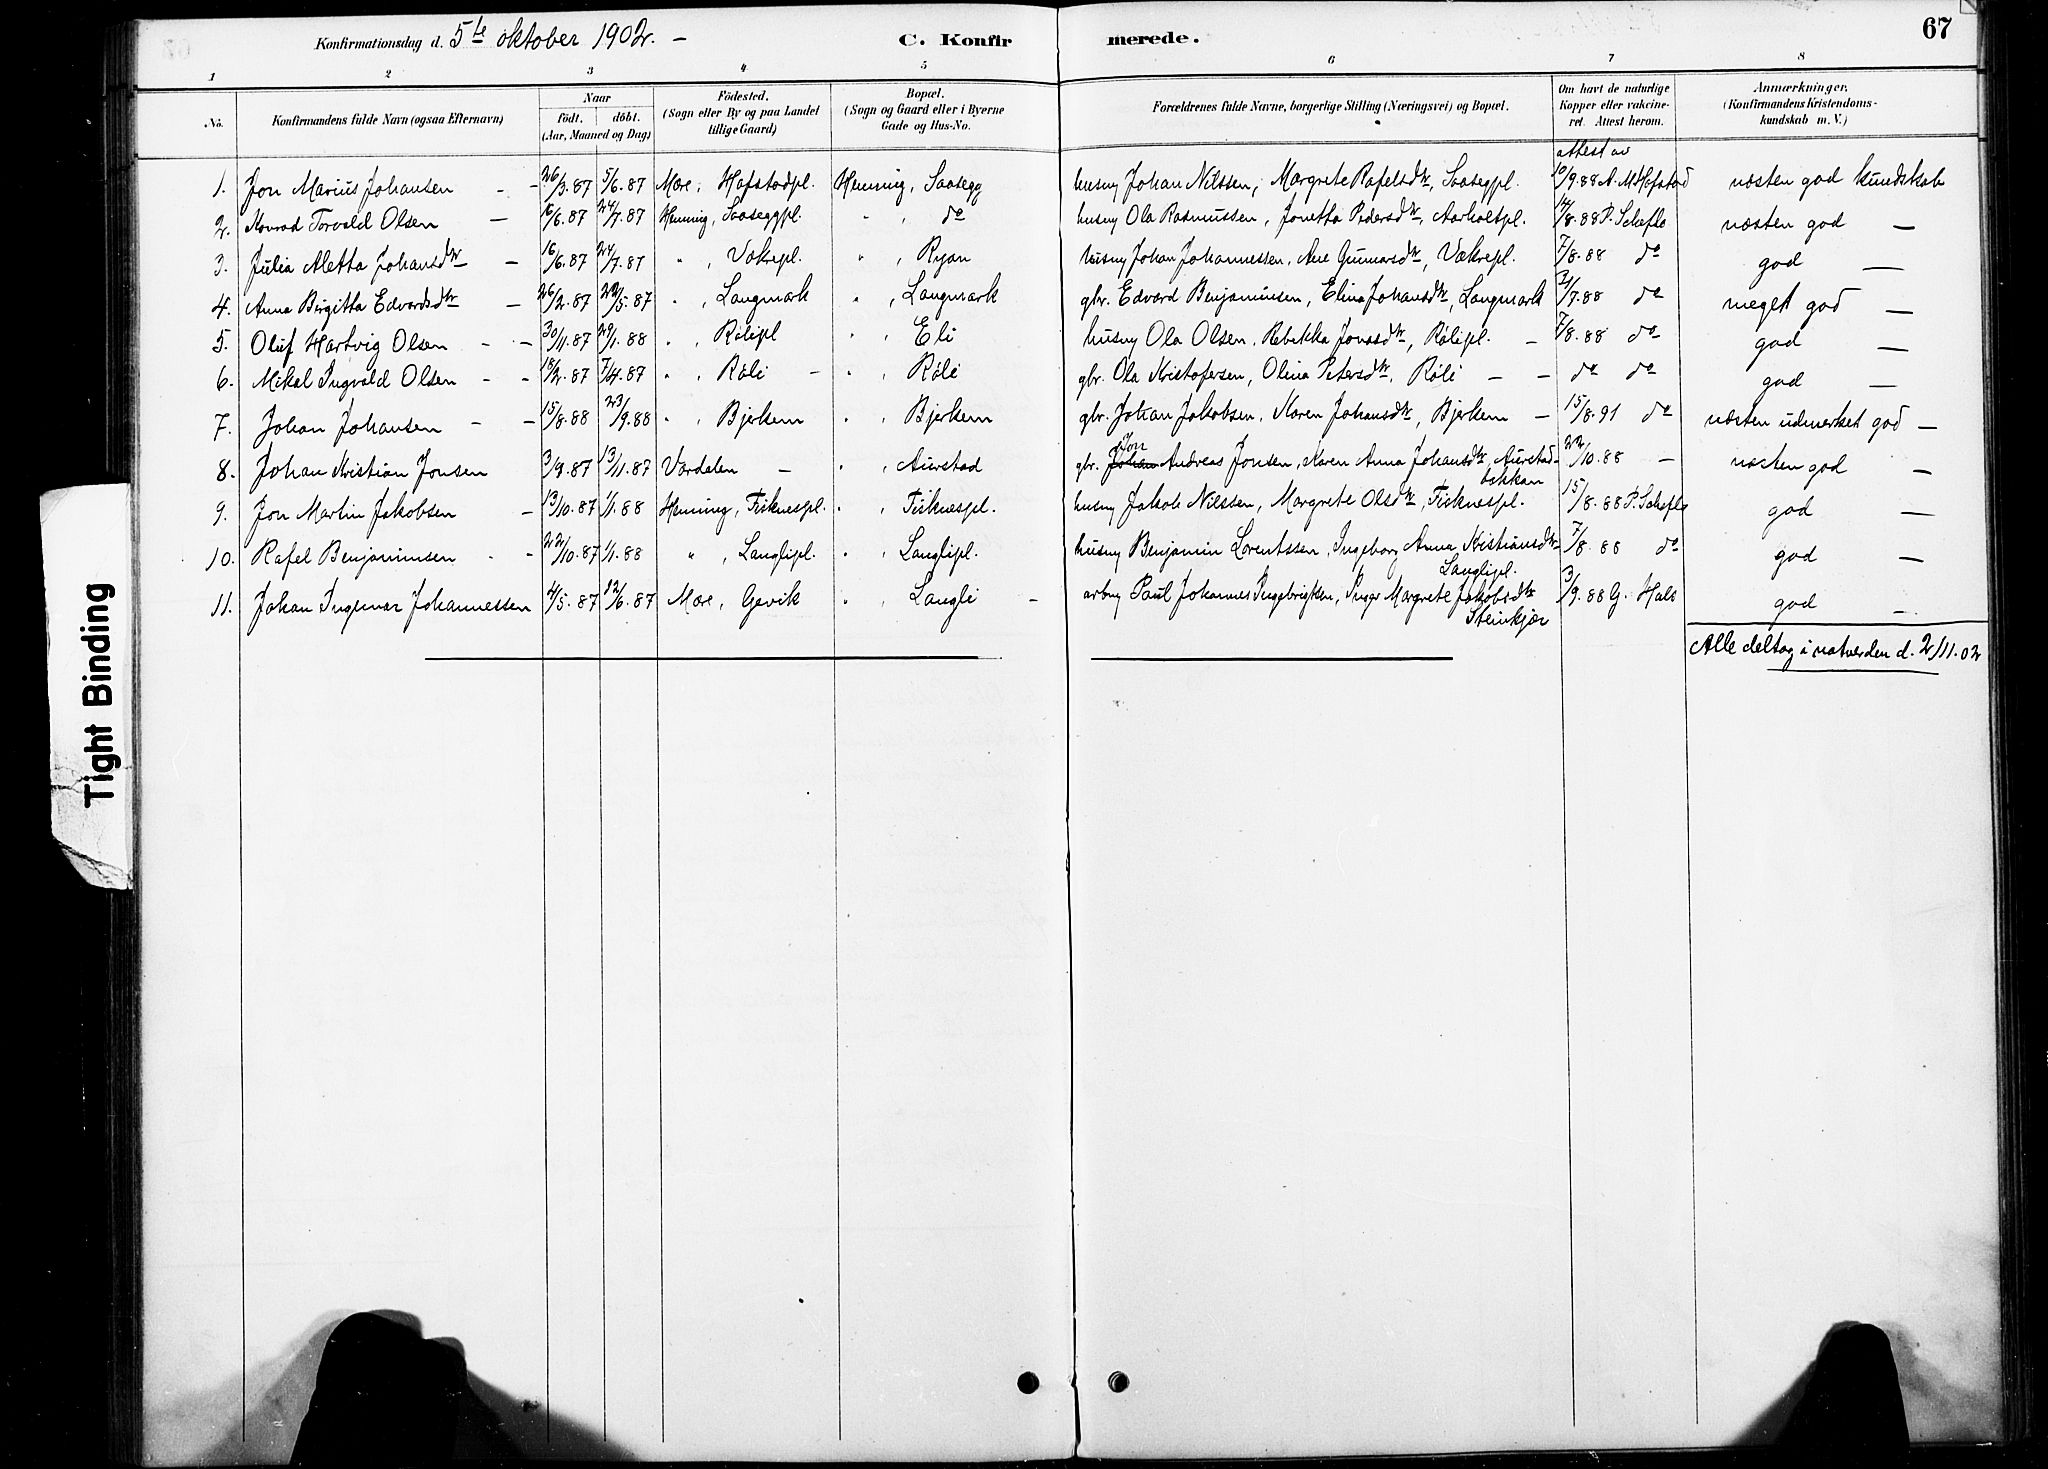 Konfirmationsdag d. 5te oktober 1902. – C. Konfirmerede. 67
1 2 3 4 5 6 7 8
No. Konfirmandens fulde Navn (ogsaa Efternavn) Naar født. døbt. (Aar, Maaned og Dag) Fødested. (Sogn eller By og paa Landet tillige Gaard) Bopæl. (Sogn og Gaard eller i Byerne Gade og Hus-No. Forældrenes fulde Navne, borgerlige Stilling (Næringsvei) og Bopæl. Om havt de naturlige Kopper eller vakcineret. Attest herom. Anmærkninger, (Konfirmandens Kristendomskundskab m. V.)
attest av
1. Jon Marius Johansen - - 26/3.87 5/6.87 Mære, Hofstadpl. Henning, Saasegg husmy Johan Nilssen, Margrete Rafelsdtr, Saaseggpl. 10/9.88 A. M. Hofstad næsten god kundskab
2. Konrad Torvald Olsen - 16/6.87 24/7.87 Henning, Saaseggpl. " , do husmy Ola Rasmussen, Jonetta Pedersdtr, Aarholtpl. 14/8.88 P. Scheflo næsten god —
3. Julia Aletta Johansdtr - 16/6.87 24/7.87 " , Vækrepl. " , Ryan husmy Johan Johannessen, Ane Gunnarsdtr, Vækrepl. 7/8.88 do god —
4. Anna Birgitta Edvardsdtr - 26/2.87 22/5.87 " , Langmark " , Langmark gbr. Edvard Benjaminsen, Elina Johansdtr, Langmark 31/7.88 do meget god —
5. Oluf Hartvig Olsen - - 30/11.87 29/1.88 " , Rølipl " , Eli husmy Ola Olsen, Rebekka Jonsdtr, Rølipl. - 7/8.88 do god —
6. Mikal Ingvald Olsen - - 18/2.87 7/4.87 " , Røli - " , Røli gbr. Ola Kristofersen, Olina Petersdtr, Røli - - do do god —
7. Johan Johansen - - 15/8.88 23/9.88 " , Bjerkem " , Bjerkem gbr. Johan Jakobsen, Karen Johansdtr, Bjerkem - 15/8.91 do næsten udmerket god —
8. Johan Kristian Jonsen 3/9.87 13/11.87 Værdalen - " , Aurstad gbr. Johan Jon Andreas Jonsen, Karen Anna Johansdtr, Aurstad- 22/10.88 - næsten god —
9. Jon Martin Jakobsen - 13/10.87 1/1.88 Henning, Fisknespl. " , Fisknespl. husmy Jakob Nilssen, Margrete Olsdtr, Fisknespl. 15/8.88 P. Scheflo god —
10. Rafel Benjaminsen - - 22/10.87 1/1.88 " , Langlipl. " , Langlipl. husmy Benjamin Lorentssen, Ingeborg Anna Kristiansdtr 7/8.88 do god —
Langlipl.
11. Johan Ingemar Johannessen 4/5.87 12/6.87 Mære, Gevik " , Langli - arbmy Paul Johannes Ingebrigtsen, Inger Margrete Jakobsdtr 3/9.88 G. Hals god —
Steinkjær
Alle deltog i natverden d. 2/11.02
Tight Binding